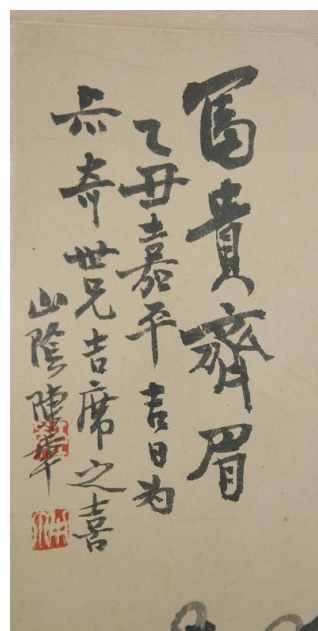 富貴齊眉
乙丑嘉平吉日为
世兄吉席之喜
山陰陳